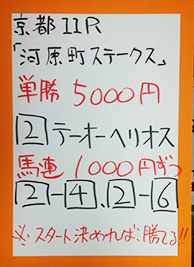 京都11R
「河原町ステークス」
単勝 5000円
2 テーオーヘリオス
馬連 1000円ずつ
2-4、2-6
※スタート決めれば、勝てる!!